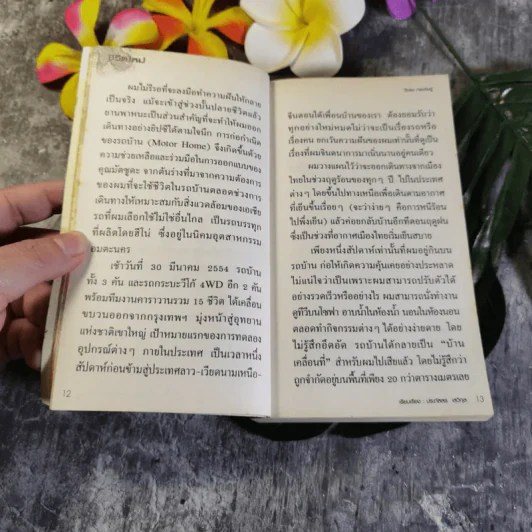 ผมไม่รีรอที่จะลงมือทำความฝันให้กลาย
เป็นจริง แม้จะเข้าสู่ช่วงบั้นปลายชีวิตแล้ว
ยานพาหนะเป็นส่วนสำคัญที่จะทำให้ผมออก
เดินทางอย่างยิปซีได้ตามใจนึก การก่อกำเนิด
ของรถบ้าน (Motor Home) จึงเกิดขึ้นด้วย
ความช่วยเหลือและร่วมมือในการออกแบบของ
คุณมัตซูดะ จากต้นร่างที่มาจากความต้องการ
ของผมที่จะใช้ชีวิตในรถบ้านตลอดช่วงการ
เดินทางให้เหมาะสมกับสิ่งแวดล้อมของเอเชีย
รถที่ผมเลือกใช้ไม่ใช่อื่นไกล เป็นรถบรรทุก
ที่ผลิตโดยฮีโน่ ซึ่งอยู่ในนิคมอุตสาหกรรม
อมตะนคร
เช้าวันที่ 30 มีนาคม 2554 รถบ้าน
ทั้ง 3 คัน และรถกระบะวีโก้ 4WD อีก 2 คัน
พร้อมทีมงานคาราวานรวม 15 ชีวิต ได้เคลื่อน
ขบวนออกจากกรุงเทพฯ มุ่งหน้าสู่อุทยาน
แห่งชาติเขาใหญ่ เป้าหมายแรกของการทดลอง
อุปกรณ์ต่างๆ ภายในประเทศ เป็นเวลาหนึ่ง
สัปดาห์ก่อนข้ามสู่ประเทศลาว-เวียดนามเหนือ-
12
จีนตอนใต้เพื่อนบ้านของเรา ต้องยอมรับว่า
ทุกอย่างใหม่หมดไม่ว่าจะเป็นเรื่องรถหรือ
เรื่องคน ยกเว้นความฝันของผมเท่านั้นที่ดูเป็น
เรื่องที่ผมจินตนาการมานิ่นนานอยู่คนเดียว
ผมวางแผนไว้ว่าจะออกเดินทางจากเมือง
ไทยในช่วงฤดูร้อนของทุก ๆ ปี ไปในประเทศ
ต่างๆ โดยขึ้นไปทางเหนือเพื่อเดินตามอากาศ
ที่เย็นขึ้นเรื่อยๆ (จะว่าง่ายๆ คือการหนีร้อน
ไปพึ่งเย็น) แล้วค่อยกลับบ้านอีกทีตอนฤดูฝน
ซึ่งเป็นช่วงที่อากาศเมืองไทยเริ่มเย็นสบาย
เพียงหนึ่งสัปดาห์เท่านั้นที่ผมอยู่กินบน
รถบ้าน ก่อให้เกิดความคุ้นเคยอย่างประหลาด
ไม่แน่ใจว่าเป็นเพราะผมสามารถปรับตัวได้
อย่างรวดเร็วหรืออย่างไร ผมสามารถนั่งทำงาน
ดูทีวีบนโซฟา อาบน้ำในห้องน้ำ นอนในห้องนอน
ตลอดทำกิจกรรมต่างๆ ได้อย่างง่ายดาย โดย
ไม่รู้สึกอึดอัด รถบ้านได้กลายเป็น "บ้าน
เคลื่อนที่" สำหรับผมไปเสียแล้ว โดยไม่รู้สึกว่า
ถูกจำกัดอยู่บนพื้นที่เพียง 20 กว่าตารางเมตรเลย
13